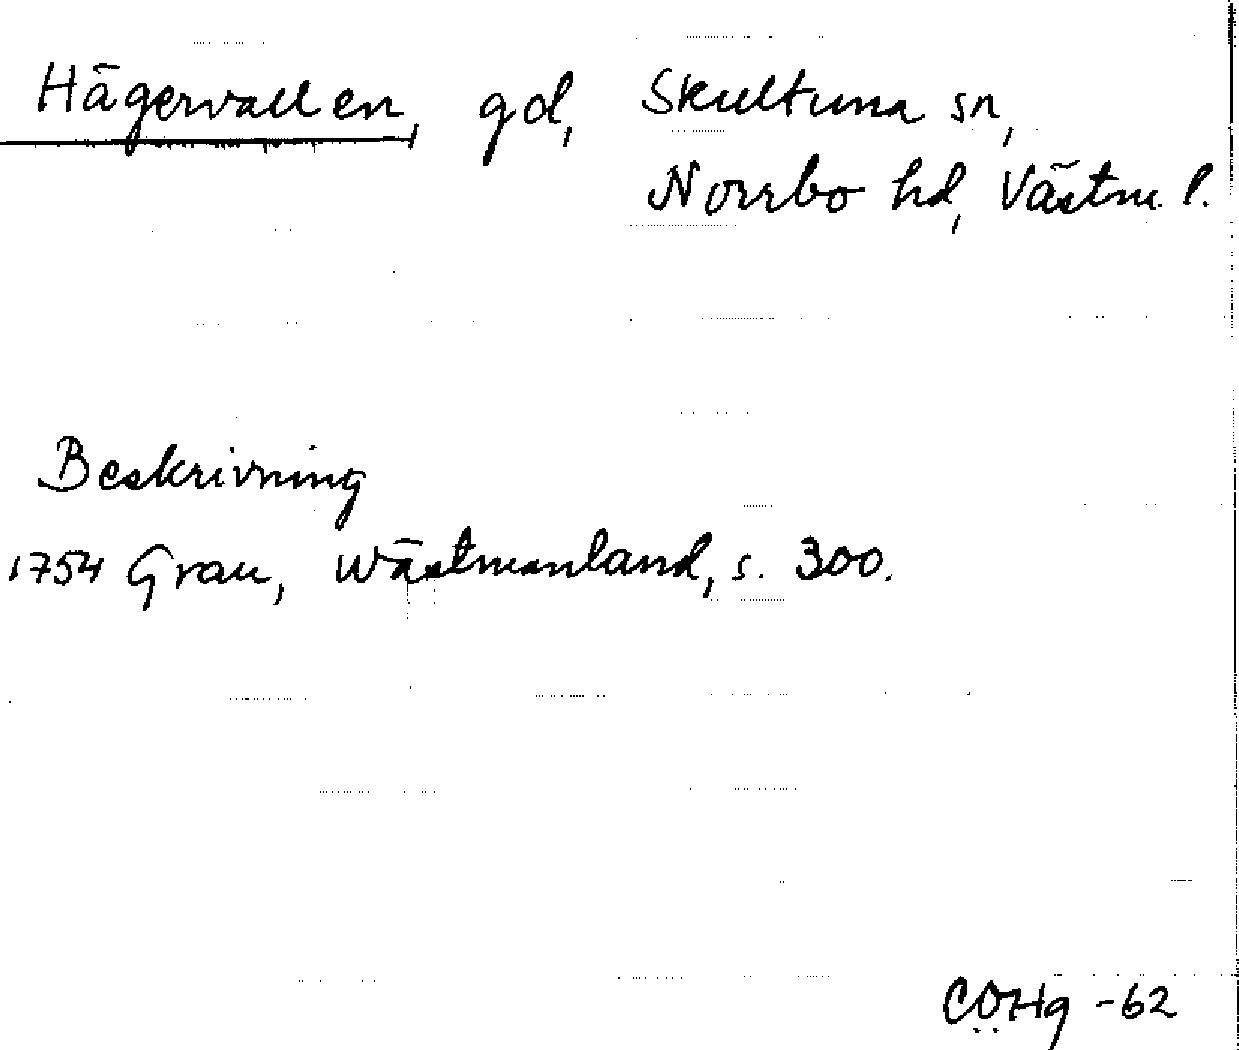 Hägervallen, gd, Skultuna sn,
Norrbo hd, Västm. l.
Beskrivning
1754 Grau, Wästmanland, s. 300.
CÖHg -62